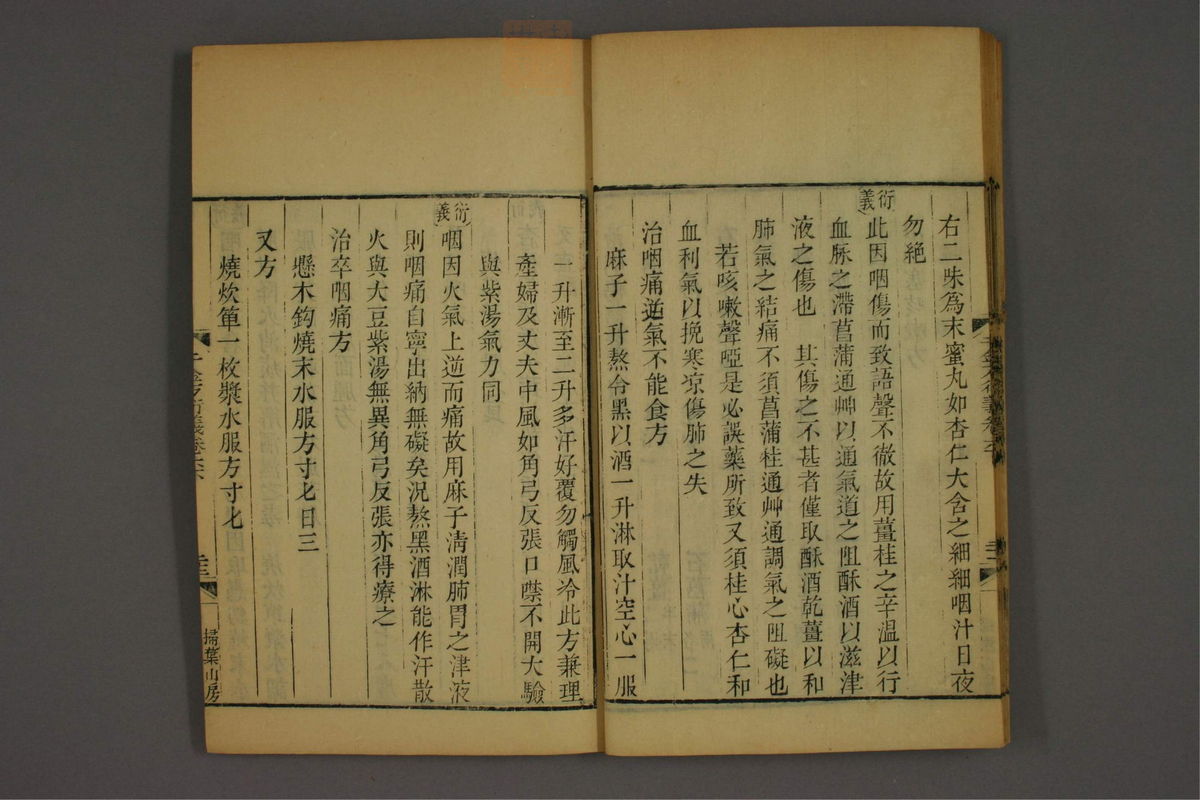 右二味爲末蜜丸如杏仁大含之細細咽汁日夜
勿絶
衍義
此因咽傷而致語聲不徹故用薑桂之辛溫以行
血脉之滯菖蒲通艸以通氣道之阻酥酒以滋津
液之傷也 其傷之不甚者僅取酥酒乾薑以和
肺氣之結痛不須菖蒲桂通艸通調氣之阻礙也
若咳嗽聲啞是必誤藥所致又須桂心杏仁和
血利氣以挽寒凉傷肺之失
治咽痛逆氣不能食方
麻子一升熬令黑以酒一升淋取汁空心一服
一升漸至二升多汗好覆勿觸風冷此方兼理
產婦及丈夫中風如角弓反張口噤不開大驗
與紫湯氣力同
衍義
咽因火氣上逆而痛故用麻子淸潤肺胃之津液
則咽痛自寧出納無礙矣況熬黑酒淋能作汗散
火與大豆紫湯無異角弓反張亦得療之
治卒咽痛方
懸木鈎燒末水服方寸匕日三
又方
燒炊箄一枚漿水服方寸匕
千金方衍義卷六
掃葉山房